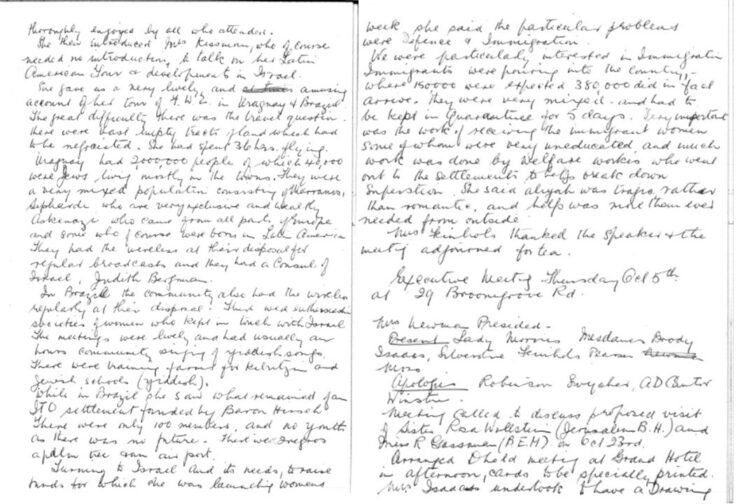 thoroughly enjoyed by all who attended.
She then introduced Mrs Kessman, who of course
needed no introduction, to talk on her Latin
American Tour & developments in Israel.
She gave us a very lively, and amusing
account of her tour of in Uruguay & Brazil
The great difficulty there was the travel question.
there were vast empty tracts of land which had
to be She had spent 36 hrs. flying.
Uruguay had 2,000,000 people of which 40,000
were Jews, living mostly in the towns. They were
a very mixed population consisting of
Sephardi who are very exclusive and wealthy
Askenazi who came from all parts of Europe
and some who of course were born in Latin America
They had the wireless at their disposal for
regular broadcasts and they had a Consul of
Israel, Judith Bergman.
In Brazil the community also had the wireless
regularly at their disposal. There were enthusiastic
societies of women who kept in touch with Israel
The meetings were lively and had usually an
hours community singing of yiddish songs.
There were training farms for and
Jewish schools (yiddish).
While in Brazil she saw what remained of an
ITO settlement founded by Baron Hirsch
There were only 100 members, and no youth
as there was no future. There were
from air port.
Turning to Israel and its needs, to raise
funds for which she was launching womens
week she said the particular problems
were Defence & Immigration.
We were particularly interested in Immigration
Immigrants were pouring into the Country,-
where 150000 were expected 380,000 did in fact
arrive. They were very mixed - and had to
be kept in Quarantine for 5 days. Very important
was the work of receiving the immigrant women
Some of whom were very uneducated, and much
work was done by Welfare workers who went
out to the settlements to help break down
Superstition. She said aliyah was tragic, rather
than romantic, and help was more than ever
needed from outside.
Mrs Feinhols thanked the Speaker & the
meeting adjourned for tea.
Executive Meeting Thursday Oct 5th.
at 29 Broomgrove Rd.
Mrs Newman Presided.
Present Lady Morris Mesdames Doody
Isaacs, Silverstone Feinhols
Moss
Apologies Robinson A D Cantor
Meeting called to discuss proposed visit
of Sister Rosa Wollstein (Jerusalem B.H.) and
Miss R Gassman (B.E.H) on Oct 23rd.
Arranged to hold meeting at Grand Hotel
in afternoon, cards to be specially printed.
Mrs Isaacs undertook to have a Drawing